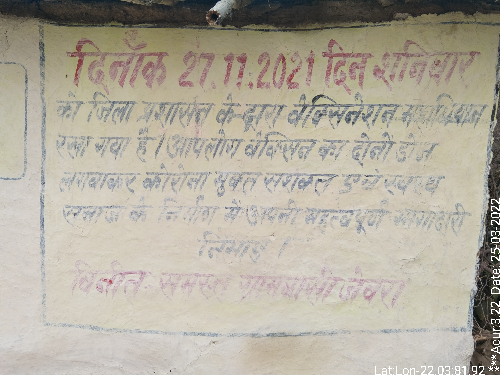 दिनाँक 27.11.2021 दिन शनिवार
को जिला प्रशासन के द्वारा वेक्सिनेशन महाअभियान
रखा गया है। आपलोग वेक्सिन का दोनो डोज
लगवाकर कोरोना मुक्त सशक्त एवं स्वस्थ
समाज के निर्माण में अपनी महत्वपूर्ण भागीदारी
निभाए।
विनीत- समस्त ग्रामवासी
Date:25-03-2022
Lat Lon-22.03,81.92